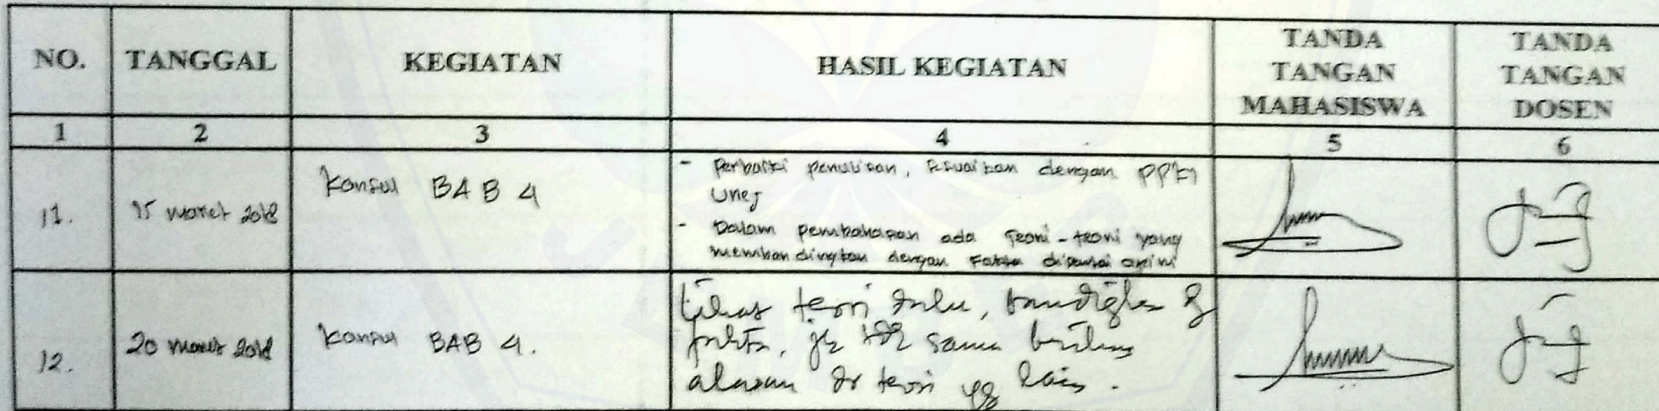 NO. TANGGAL KEGIATAN HASIL KEGIATAN TANDA TANGAN MAHASISWA TANDA TANGAN DOSEN
1 2 3 4 5 6
11. 15 maret 2018 Konsul BAB 4 - Perbaiki penulisan, sesuaikan dengan PPKI
Unej
- Dalam pembahasan ada teori-teori yang
membandingkan dengan fakta disertai opini
12. 20 maret 2018 Konsul BAB 4. teori dulu, bandingkan dg
fakta, jk tdk sama berikan
alasan dr teori yg lain.